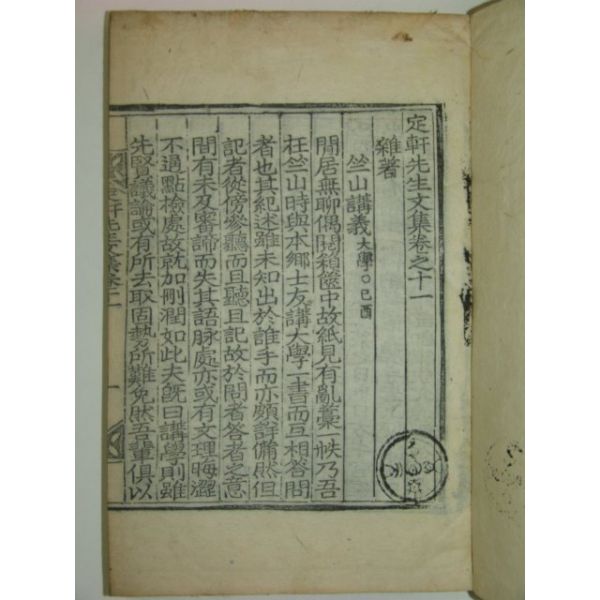 定軒先生文集卷之十一
雜著
竺山講義 大學○己酉
閒居無聊偶閱箱篋中故紙見有亂藁一帙乃吾
枉竺山時與本鄉士友講大學一書而互相答問
者也其紀述雖未知出於誰手而亦頗詳備然但
記者從傍參聽而且聽且記故於問者答者之意
間有未及審諦而失其語脉處亦或有文理晦澀
不過點檢處故就加刪潤如此夫旣曰講學則雖
先賢議論或有所去取固勢所難免然吾輩俱以
定軒先生文集卷十一
一